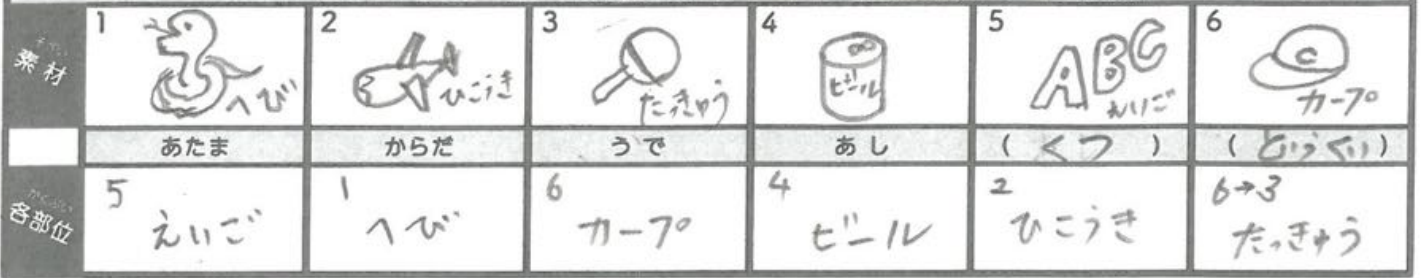 素材
そざい
1
へび
2
ひこうき
3
たっきゅう
4
ビール
5
ABC
えいご
6
C
カープ
あたま
からだ
うで
あし
(くつ)
(どうぐ)
各部位
かくぶい
5
えいご
1
へび
6
カープ
4
ビール
2
ひこうき
6→3
たっきゅう